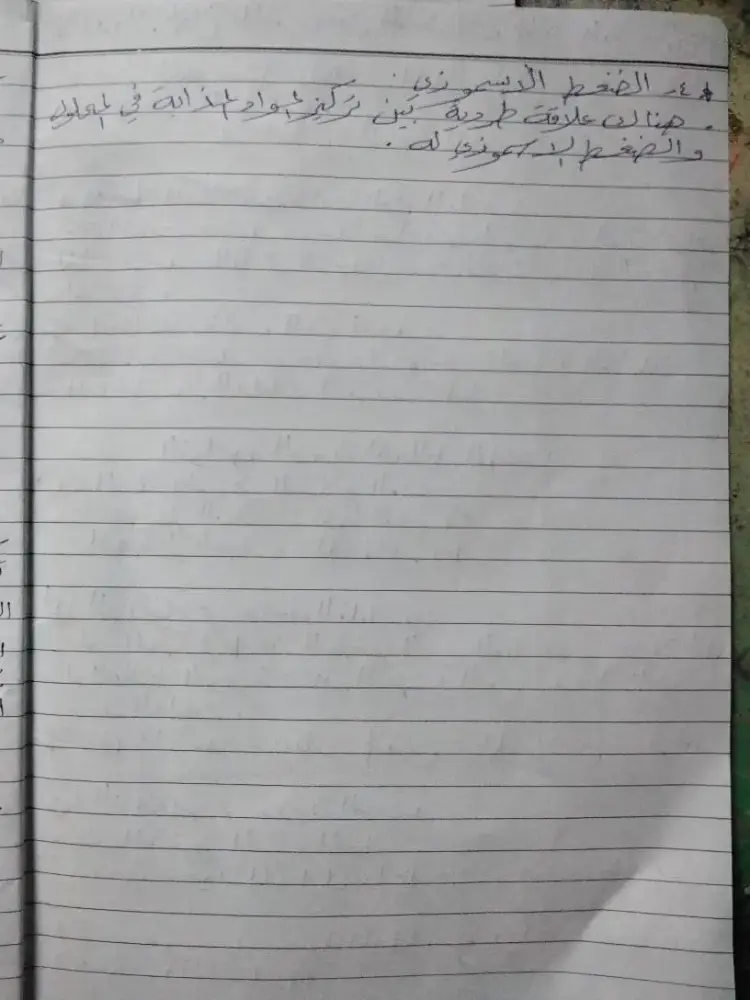 * ٤- الضغط الأسموزي :
. هنالك علاقة طردية بين تركيز المواد المذابة في المحلول
والضغط الاسموزي له .